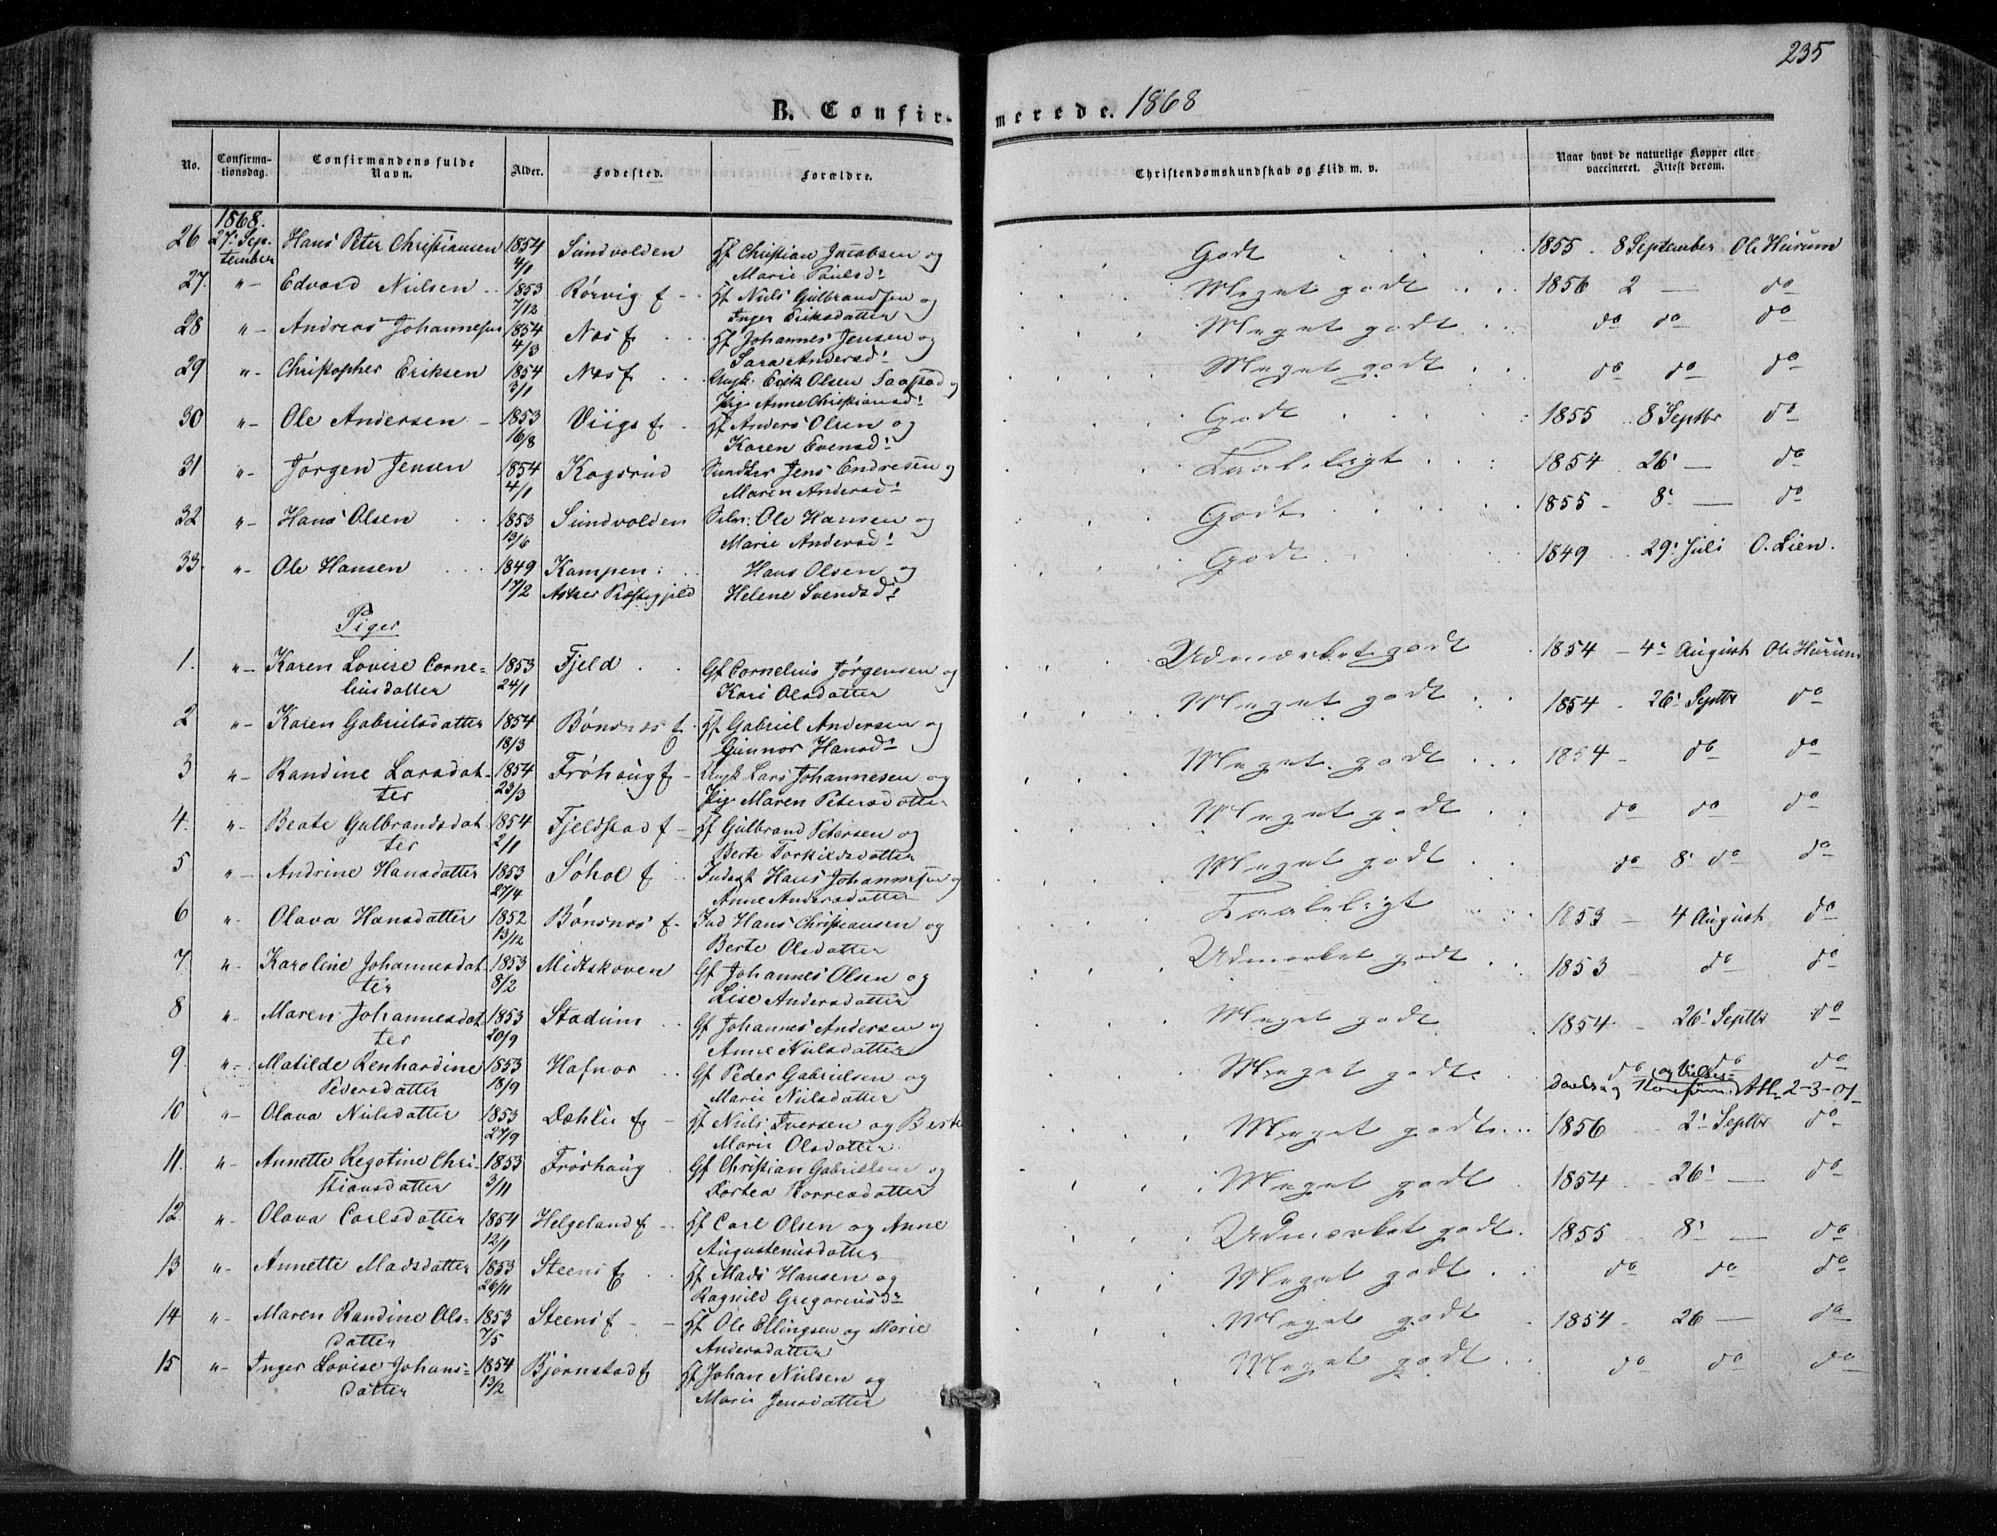 235
B. Confirmerede. 1868
No. Confirmationsdag. Confirmandens fulde Navn. Alder. Fødested. Forældre. Christendomskundskab og Flid m. v. Naar havt de naturlige Kopper eller vaccineret. Attest derom.
1868.
26 27. September Hans Peter Christiansen 1854 4/1 Sundvolden Gf Christian Jacobsen og Marie Paulsd. Godt 1855 8 September Ole Hurum
27. "- Edvard Nielsen 1853 7/12 Rørvig f Hf Niels Gulbrandsen og Inger Eriksdatter Meget godt 1856 2 — do
28 "- Andreas Johannesen 1854 4/3 Næs f Hf Johannes Jensen og Sara Andersd. Meget godt do do do
29 "- Christopher Eriksen 1854 3/1 Næs f Ungk. Erik Olsen Saastad og Pige Anne Christiansd. Meget godt do do do
30 "- Ole Andersen 1853 16/8 Viigs f Hf Anders Olsen og Karen Evensd. Godt 1855 8 Septbr do
31 "- Jørgen Jensen 1854 4/1 Kogsrud Jens Endresen og Maren Andersd. Taaleligt 1854 26 — do
32 "- Hans Olsen 1853 13/6 Sundvolden Ole Hansen og Marie Andersd. Godt 1855 8 — do
33 "- Ole Hansen 1849 17/2 Kampen Asker Præstegjeld Hans Olsen og Helene Svendsd. Godt 1849 29. Juli O. Lien.
Piger
1. "- Karen Lovise Corneliusdatter 1853 24/1 Fjeld Gf Cornelius Jørgensen og Kari Olsdatter Udmærket godt 1854 4. August Ole Hurum
2 "- Karen Gabrielsdatter 1854 18/3 Bønsnæs f Hf Gabriel Andersen og Gunnor Hansd. Meget godt 1854 26. Septbr do
3 "- Randine Larsdatter 1854 23/3 Frøhaug f Ungk Lars Johannesen og Pige Maren Petersdatter Meget godt 1854 do do
4. "- Beate Gulbrandsdatter 1854 2/1 Fjeldstad f Hf Gulbrand Petersen og Berte Torkildsdatter Meget godt do do do
5 "- Andrine Hansdatter 1853 27/4 Søhol f Inderst Hans Johannesen og Anne Andersdatter Meget godt do 8. do do
6 "- Olava Hansdatter 1852 13/12 Bønsnæs f Ind Hans Christiansen og Berte Olsdatter Taaleligt 1853 4 August do
7. "- Karoline Johannesdatter 1853 8/2 Midtskoven Gf Johannes Olsen og Lise Andersdatter Udmærket godt 1853 do do
8 "- Maren Johannesdatter 1853 20/9 Stadum Gf Johannes Andersen og Anne Nielsdatter Meget godt 1854 26. Septbr do
9. "- Matilde Renhardine Pedersdatter 1853 18/9 Hafnor Gf Peder Gabrielsen og Marie Nielsdatter Meget godt do do do
Daabs og Att. 2-3-01
10 "- Olava Nielsdatter 1853 27/9 Dæhlie f Hf Niels Iversen og Berte Marie Olsdatter Meget godt 1856 2. Septbr do
11. "- Annette Regotine Christiansdatter 1853 3/11 Frøshaug Gf Christian Gabrielsen og Dortea Korresdatter Meget godt 1854 26. — do
12. "- Olava Carlsdatter 1854 12/1 Helgeland f Hf Carl Olsen og Anne Augustenusdatter Udmærket godt 1855 8. — do
13 "- Annette Madsdatter 1853 26/11 Steens f Hf Mads Hansen og Ragnild Gregoriusd. Meget godt do do do
14 "- Maren Randine Olsdatter 1853 7/5 Steens f Hf Ole Ellingsen og Marie Andersdatter Meget godt 1854 26 — do
15 "- Inger Lovise Johansdatter 1854 13/2 Bjørnstad f Hf Johan Nielsen og Marie Jensdatter Meget godt do do do